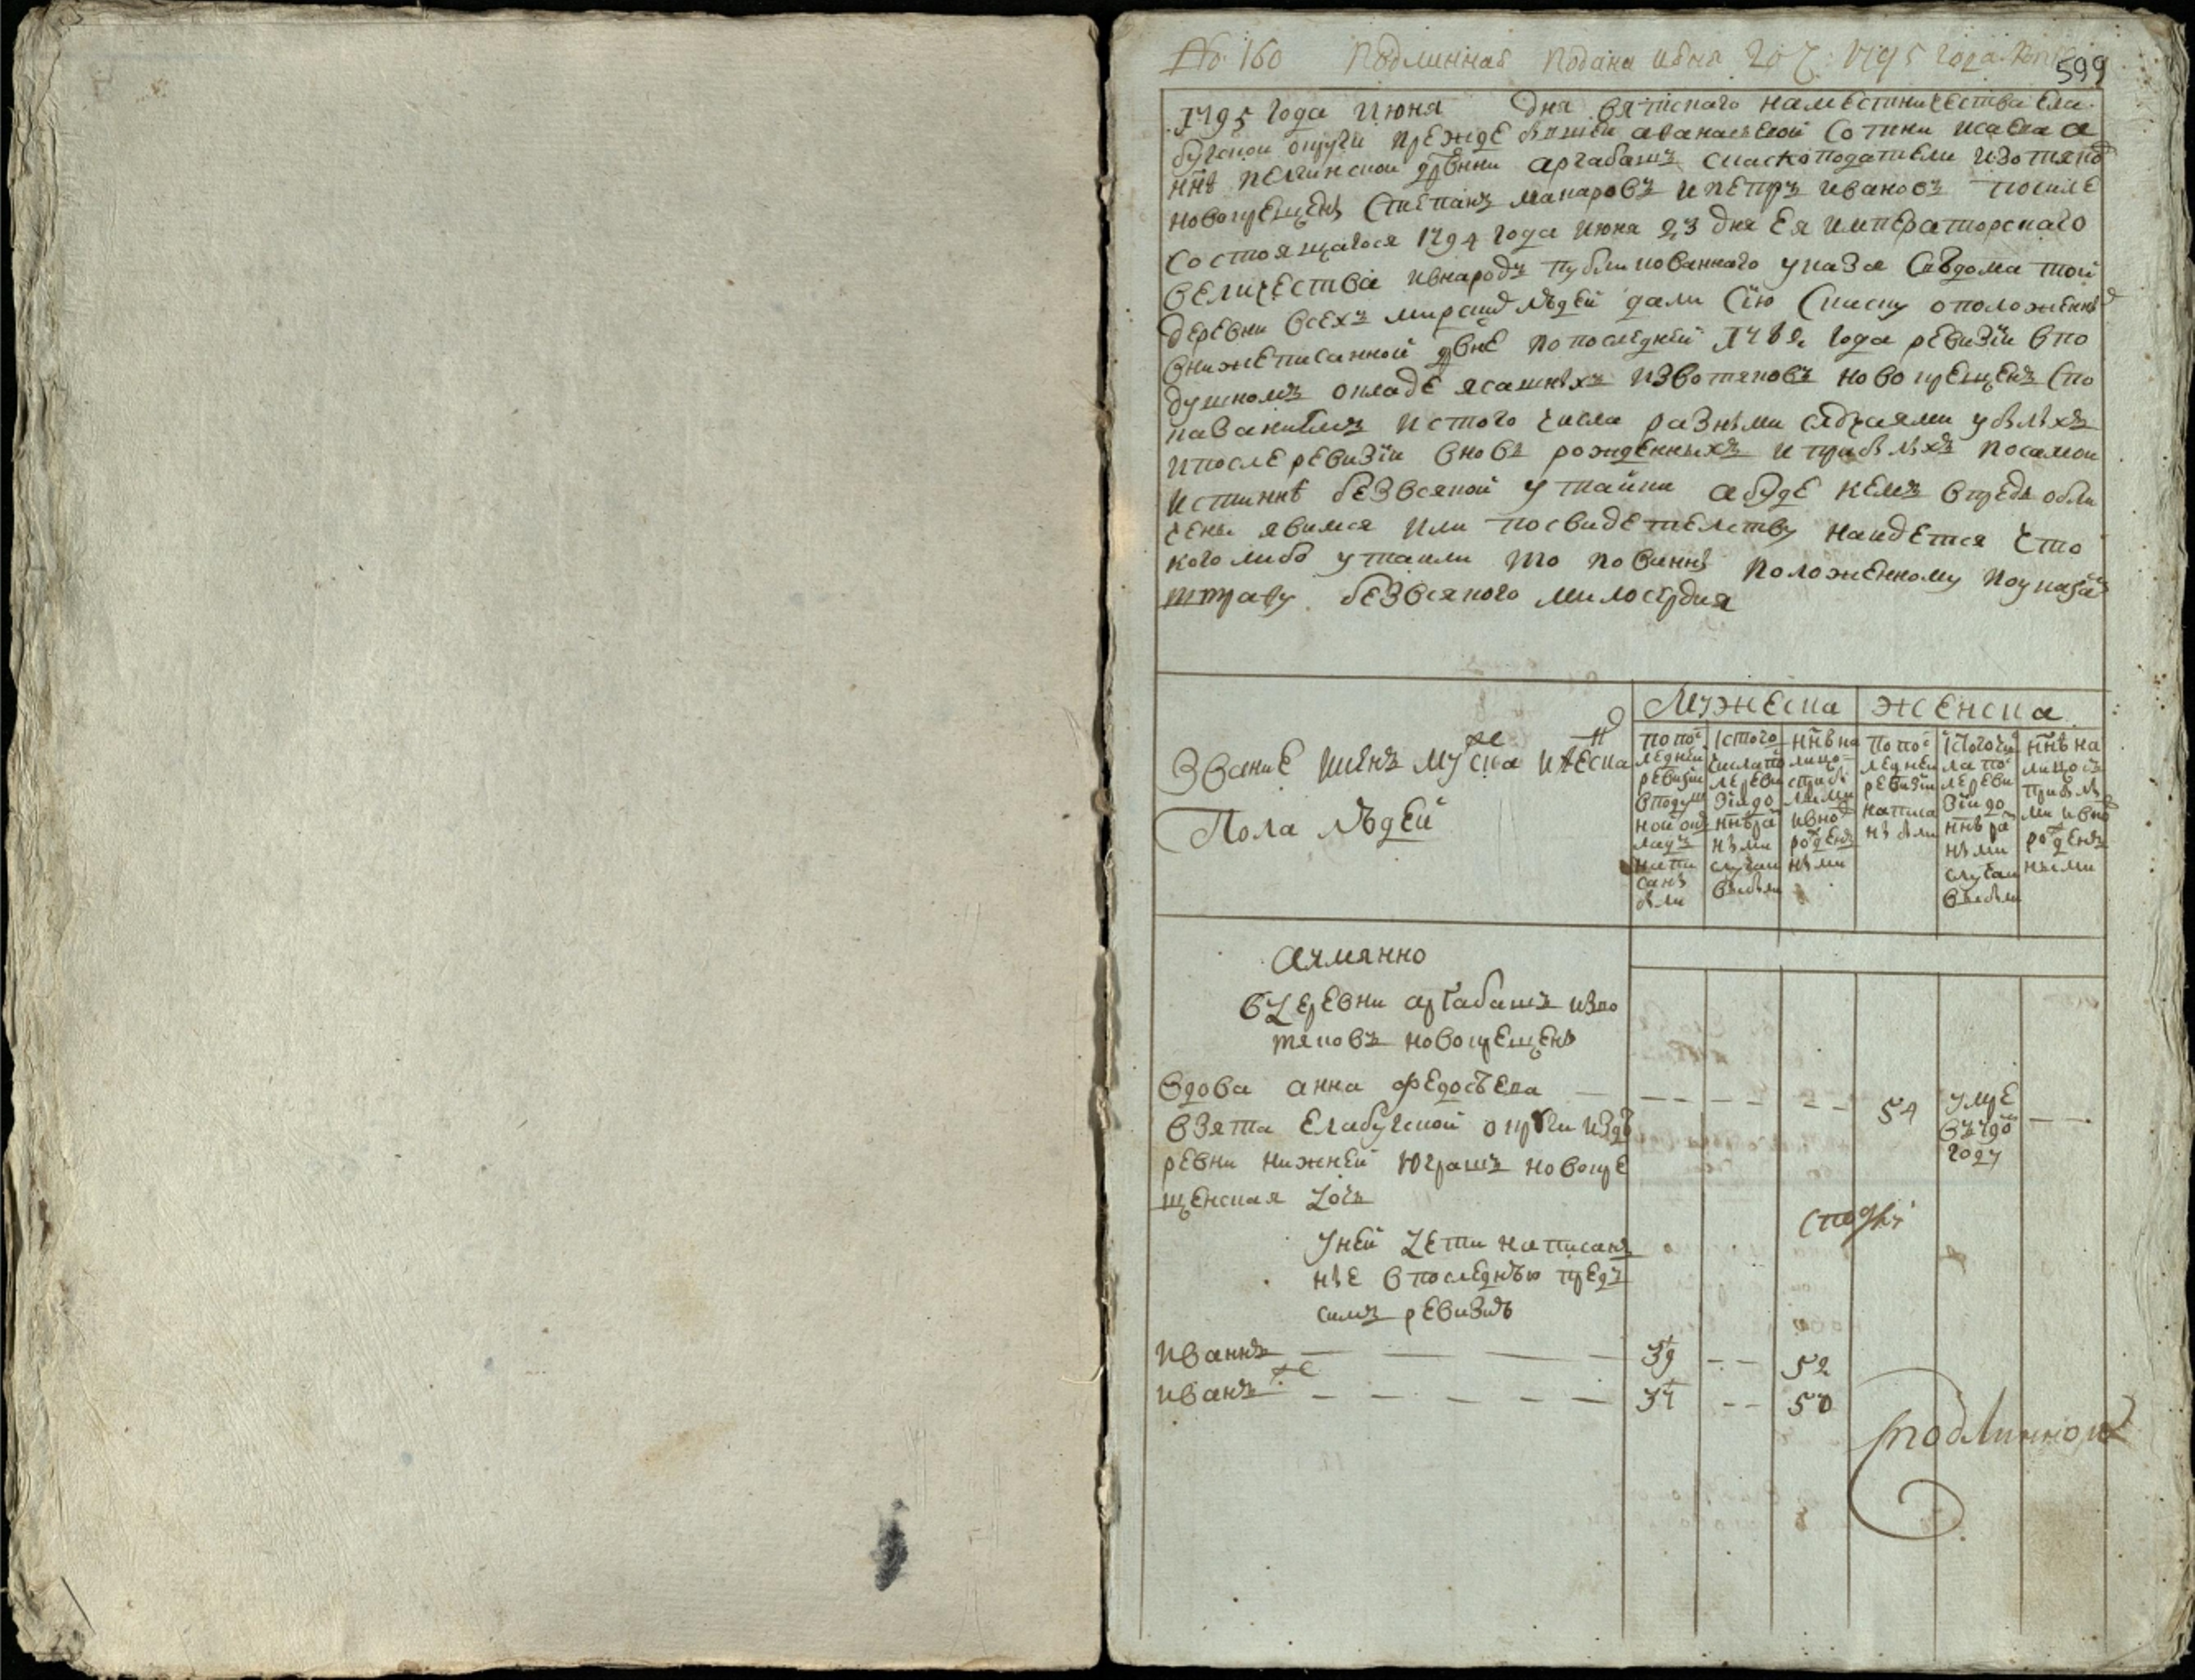 № 160 Подлинная подана июня 20 ч: 1795 года
599
1795 года июня дня вятского наместничества ела
бугской округи прежде бывшей афанасьевой сотни исаева а
ннѣ пелгинской дрвни аргабашъ скаскоподатели извотяко
новокрещены степанъ макаровъ и петръ ивановъ посиле
состоящагося 1794 года июня 23 дня Ея императорскаго
величества ивнародъ публикованнаго указа сведома той
деревни всехъ мирски людей дали сїю скаску оположенны
внижеписанной двне попоследней 1782 года ревизїи впо
душномъ окладе ясашныхъ извотяковъ новокрещенъ спо
казаниемъ истого числа разными случаями убылыхъ
ипосле ревизїи вновь рожденныхъ и прибылыхъ посамой
истинне безвсякой утайки абуде кемъ впредь обли
чены явимся или посвидетельству найдется что
кого либо утаили то повинны положенному поуказа
штрафу безвсякого милосердия
Мужеска Женска
Звание именъ муска иЖеска
Пола людей
попо
ледней
ревизїи
вподуш
ной ок
ладъ
напи
саны
были
истого
числапо
леревн
зїидо
ннѣра
ными
случаи
выбыли
ннѣна
лицо
сприбы
лыми
ивно
рожден
ными
попо
ледней
ревизїи
написа
ны были
истогочи
ла по
лереви
зїидо
ннѣ ра
ными
случаи
выбыли
ннѣ на
лицо съ
прибылы
ми ивно
рожден
ными
Аимянно
вдеревни аргабашъ изво
тяковъ новокрещены
вдова анна федосѣева — — — — 54 умре въ 790 году —
взята елабугской округи изде
ревни нижней юрашъ новокре
щенская дочь
унеи дети написан
ные в последнюю предъ
симъ ревизию
иваннъ — 39 — 52
иванъ же — 37 — 50
Сподлинной